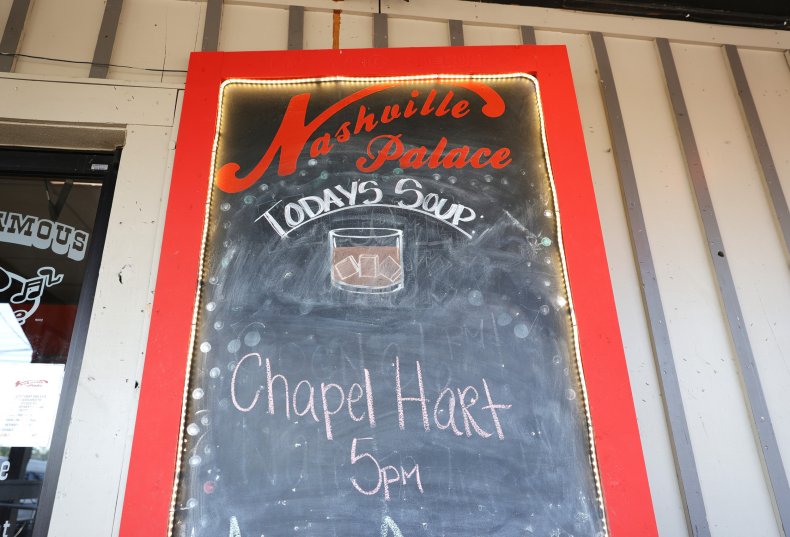 Nashville
Palace
TODAYS SOUP:
Chapel Hart
5pm